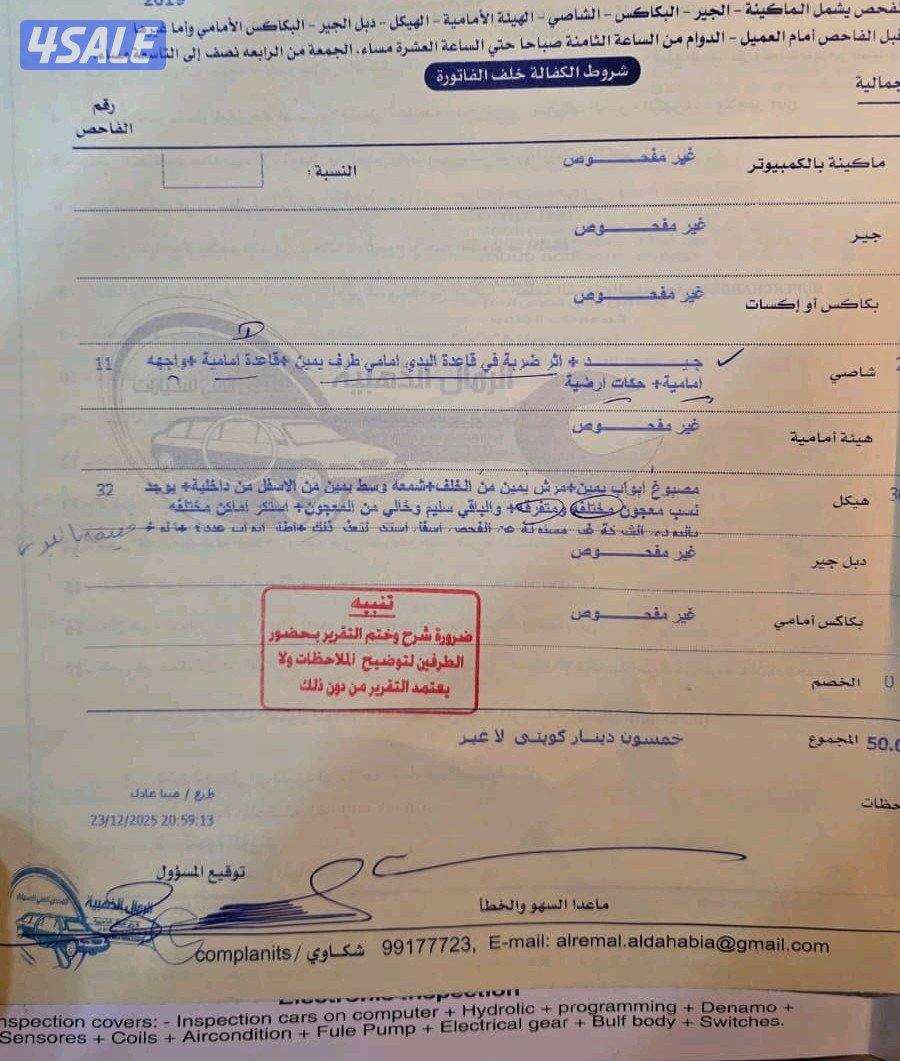 2019
4SALE
لفحص يشمل الماكينة - الجير - البكاكس - الشاصي - الهيئة الأمامية - الهيكل - دبل الجير - البكاكس الأمامي وأما غيرها
قبل الفاحص أمام العميل - الدوام من الساعة الثامنة صباحا حتي الساعة العشرة مساء، الجمعة من الرابعه نصف إلى التاسعة مساء.
شروط الكفالة خلف الفاتورة
جمالية
رقم
الفاحص
ماكينة بالكمبيوتر غير مفحـــــــوص النسبة :
جير غير مفحـــــــوص
بكاكس أو إكسات غير مفحـــــــوص
شاصي جيـــــــد + اثر ضربة في قاعدة البدي امامي طرف يمين +قاعدة امامية +واجهه 11
امامية+ حكات ارضية
الرمال الذهبية
هيئة أمامية غير مفحـــــــوص
هيكل مصبوغ ابواب يمين+مرش يمين من الخلف+شمعه وسط يمين من الاسفل من داخلية+ يوجد 32
نسب معجون مختلفه ومتفرقه+ والباقي سليم وخالي من المعجون+ استكر اماكن مختلفه
دبل جير غير مفحـــــــوص
بكاكس أمامي غير مفحـــــــوص
تنبيه
ضرورة شرح وختم التقرير بحضور
الطرفين لتوضيح الملاحظات ولا
يعتمد التقرير من دون ذلك
الخصم 0
المجموع 50.0 خمسون دينار كويتى لا غير
حظات
23/12/2025 20:59:13
توقيع المسؤول
ماعدا السهو والخطأ
الرمال الذهبية
complanits / شكاوي 99177723, E-mail: alremal.aldahabia@gmail.com
Electronic Inspection
nspection covers: - Inspection cars on computer + Hydrolic + programming + Denamo +
Sensores + Coils + Aircondition + Fule Pump + Electrical gear + Bulf body + Switches.